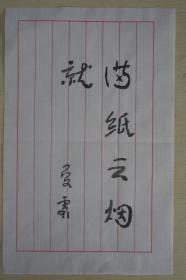 满纸云烟
就
爱霖